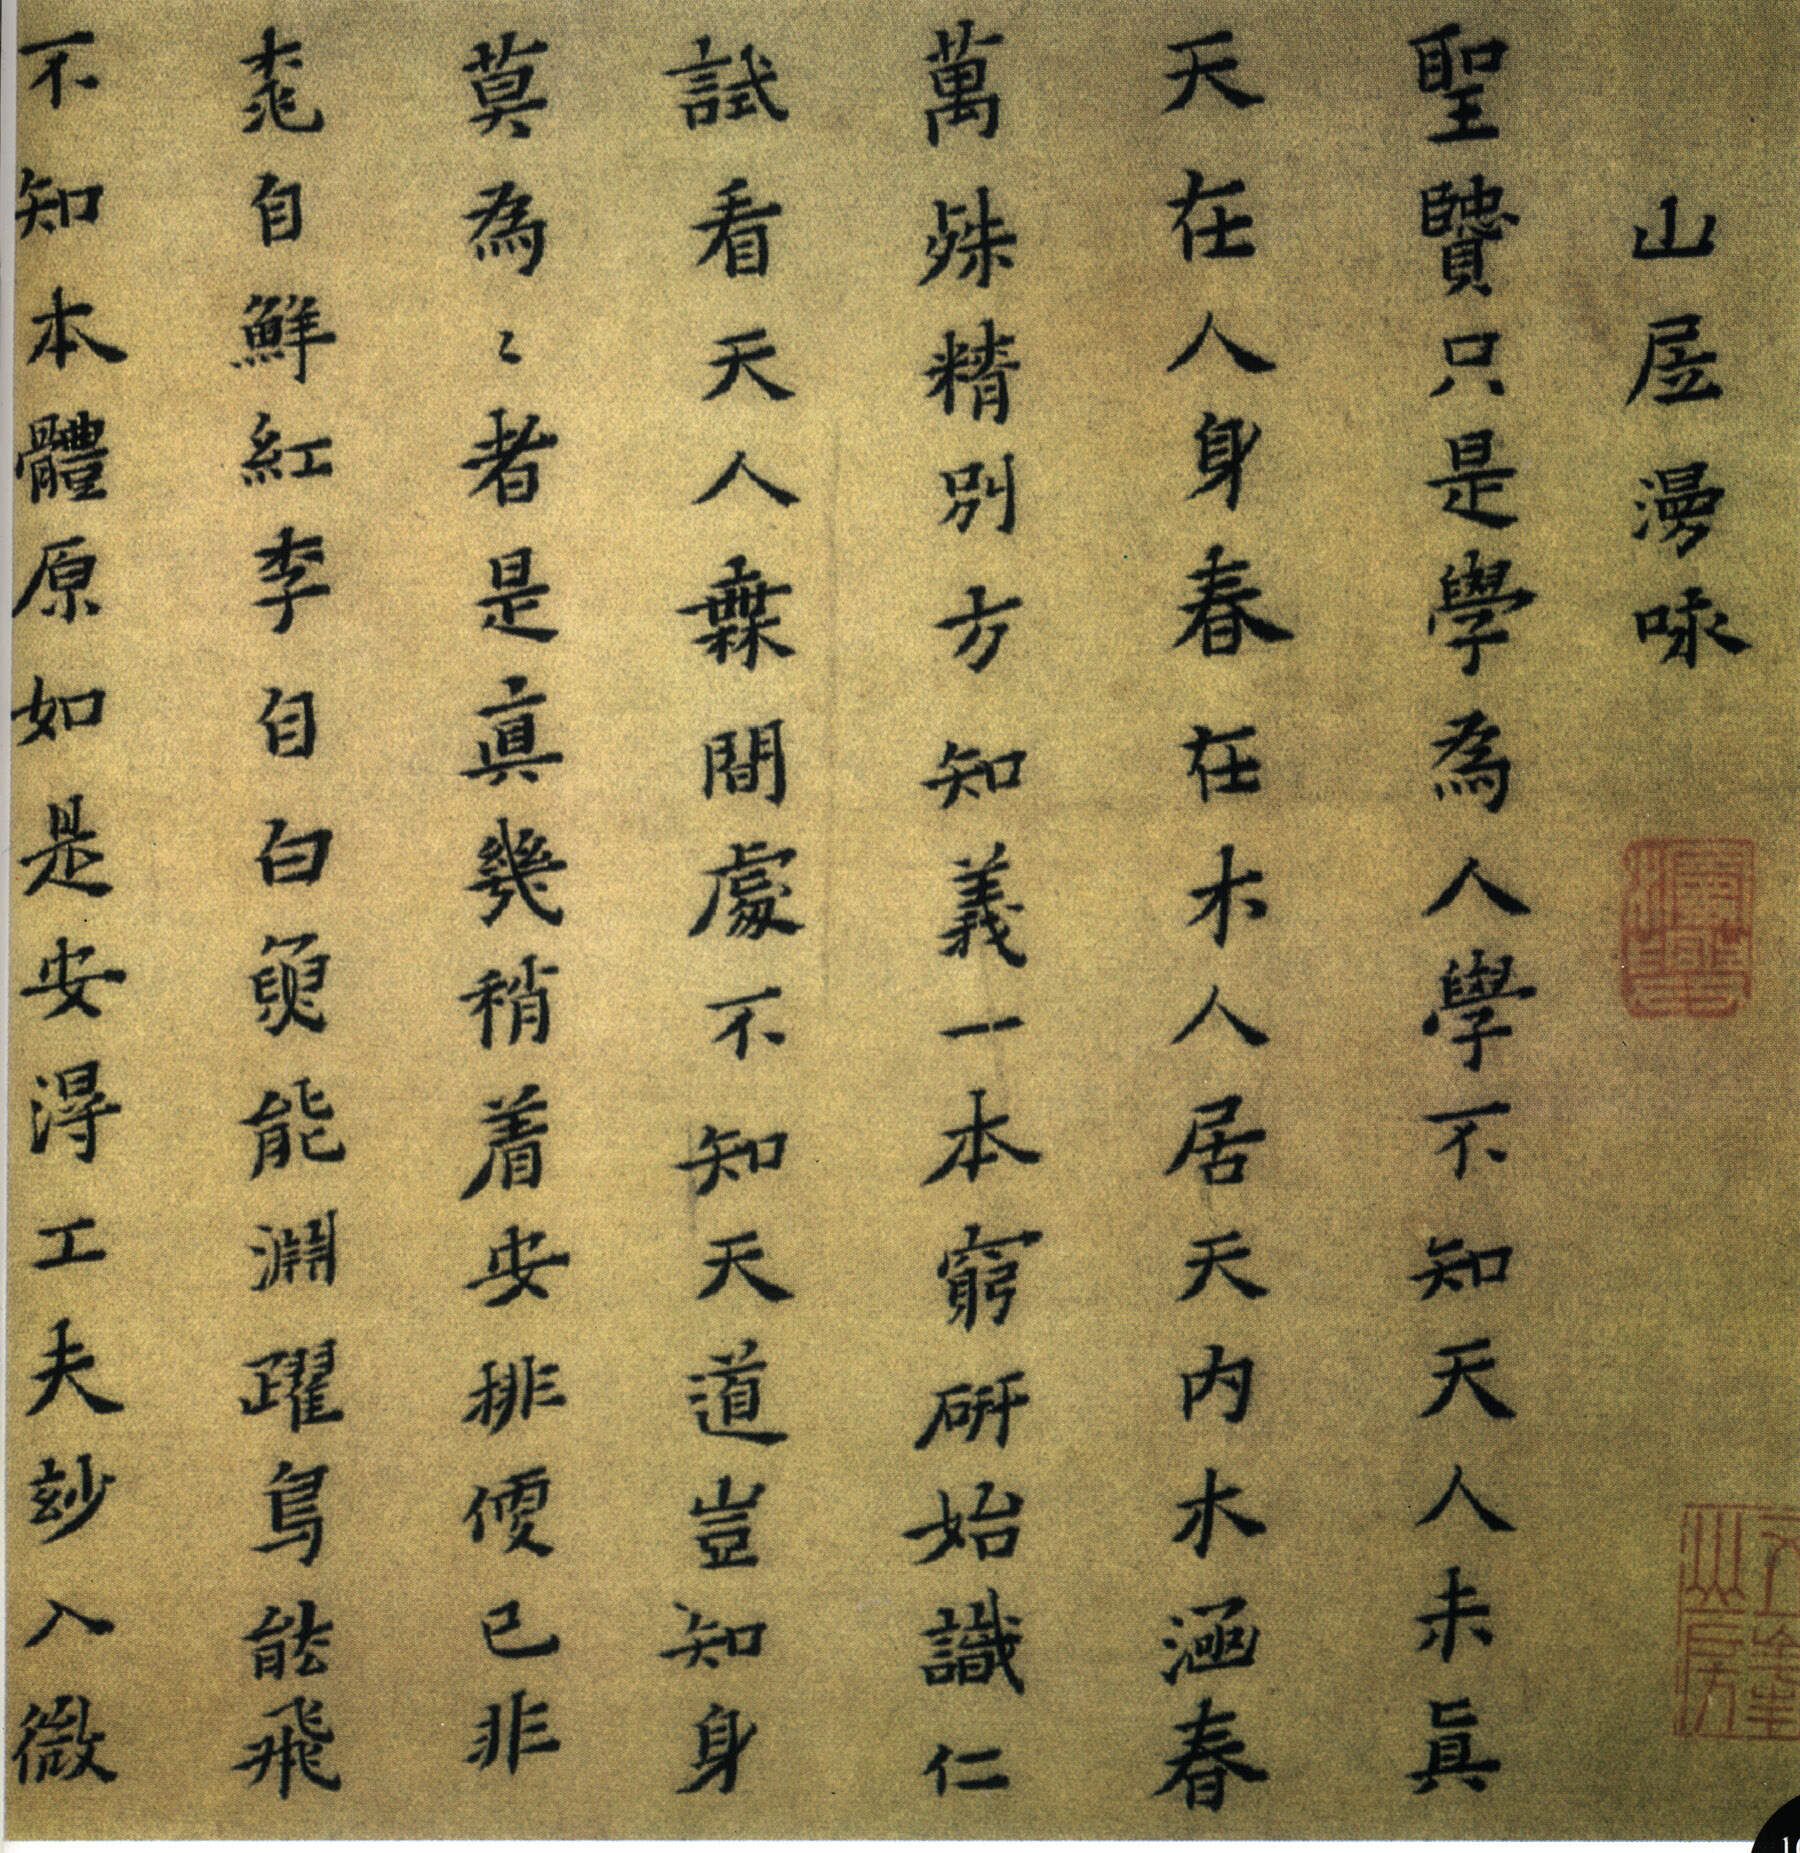 山居漫咏
聖賢只是學為人學不知天人未真
天在人身春在木人居天内木涵春
萬殊精別方知義一本窮研始識仁
試看天人無間處不知天道豈知身
莫為〻者是真幾稍着安排便已非
桃自鮮紅李自白魚能淵躍鳥能飛
不知本體原如是安得工夫妙入微